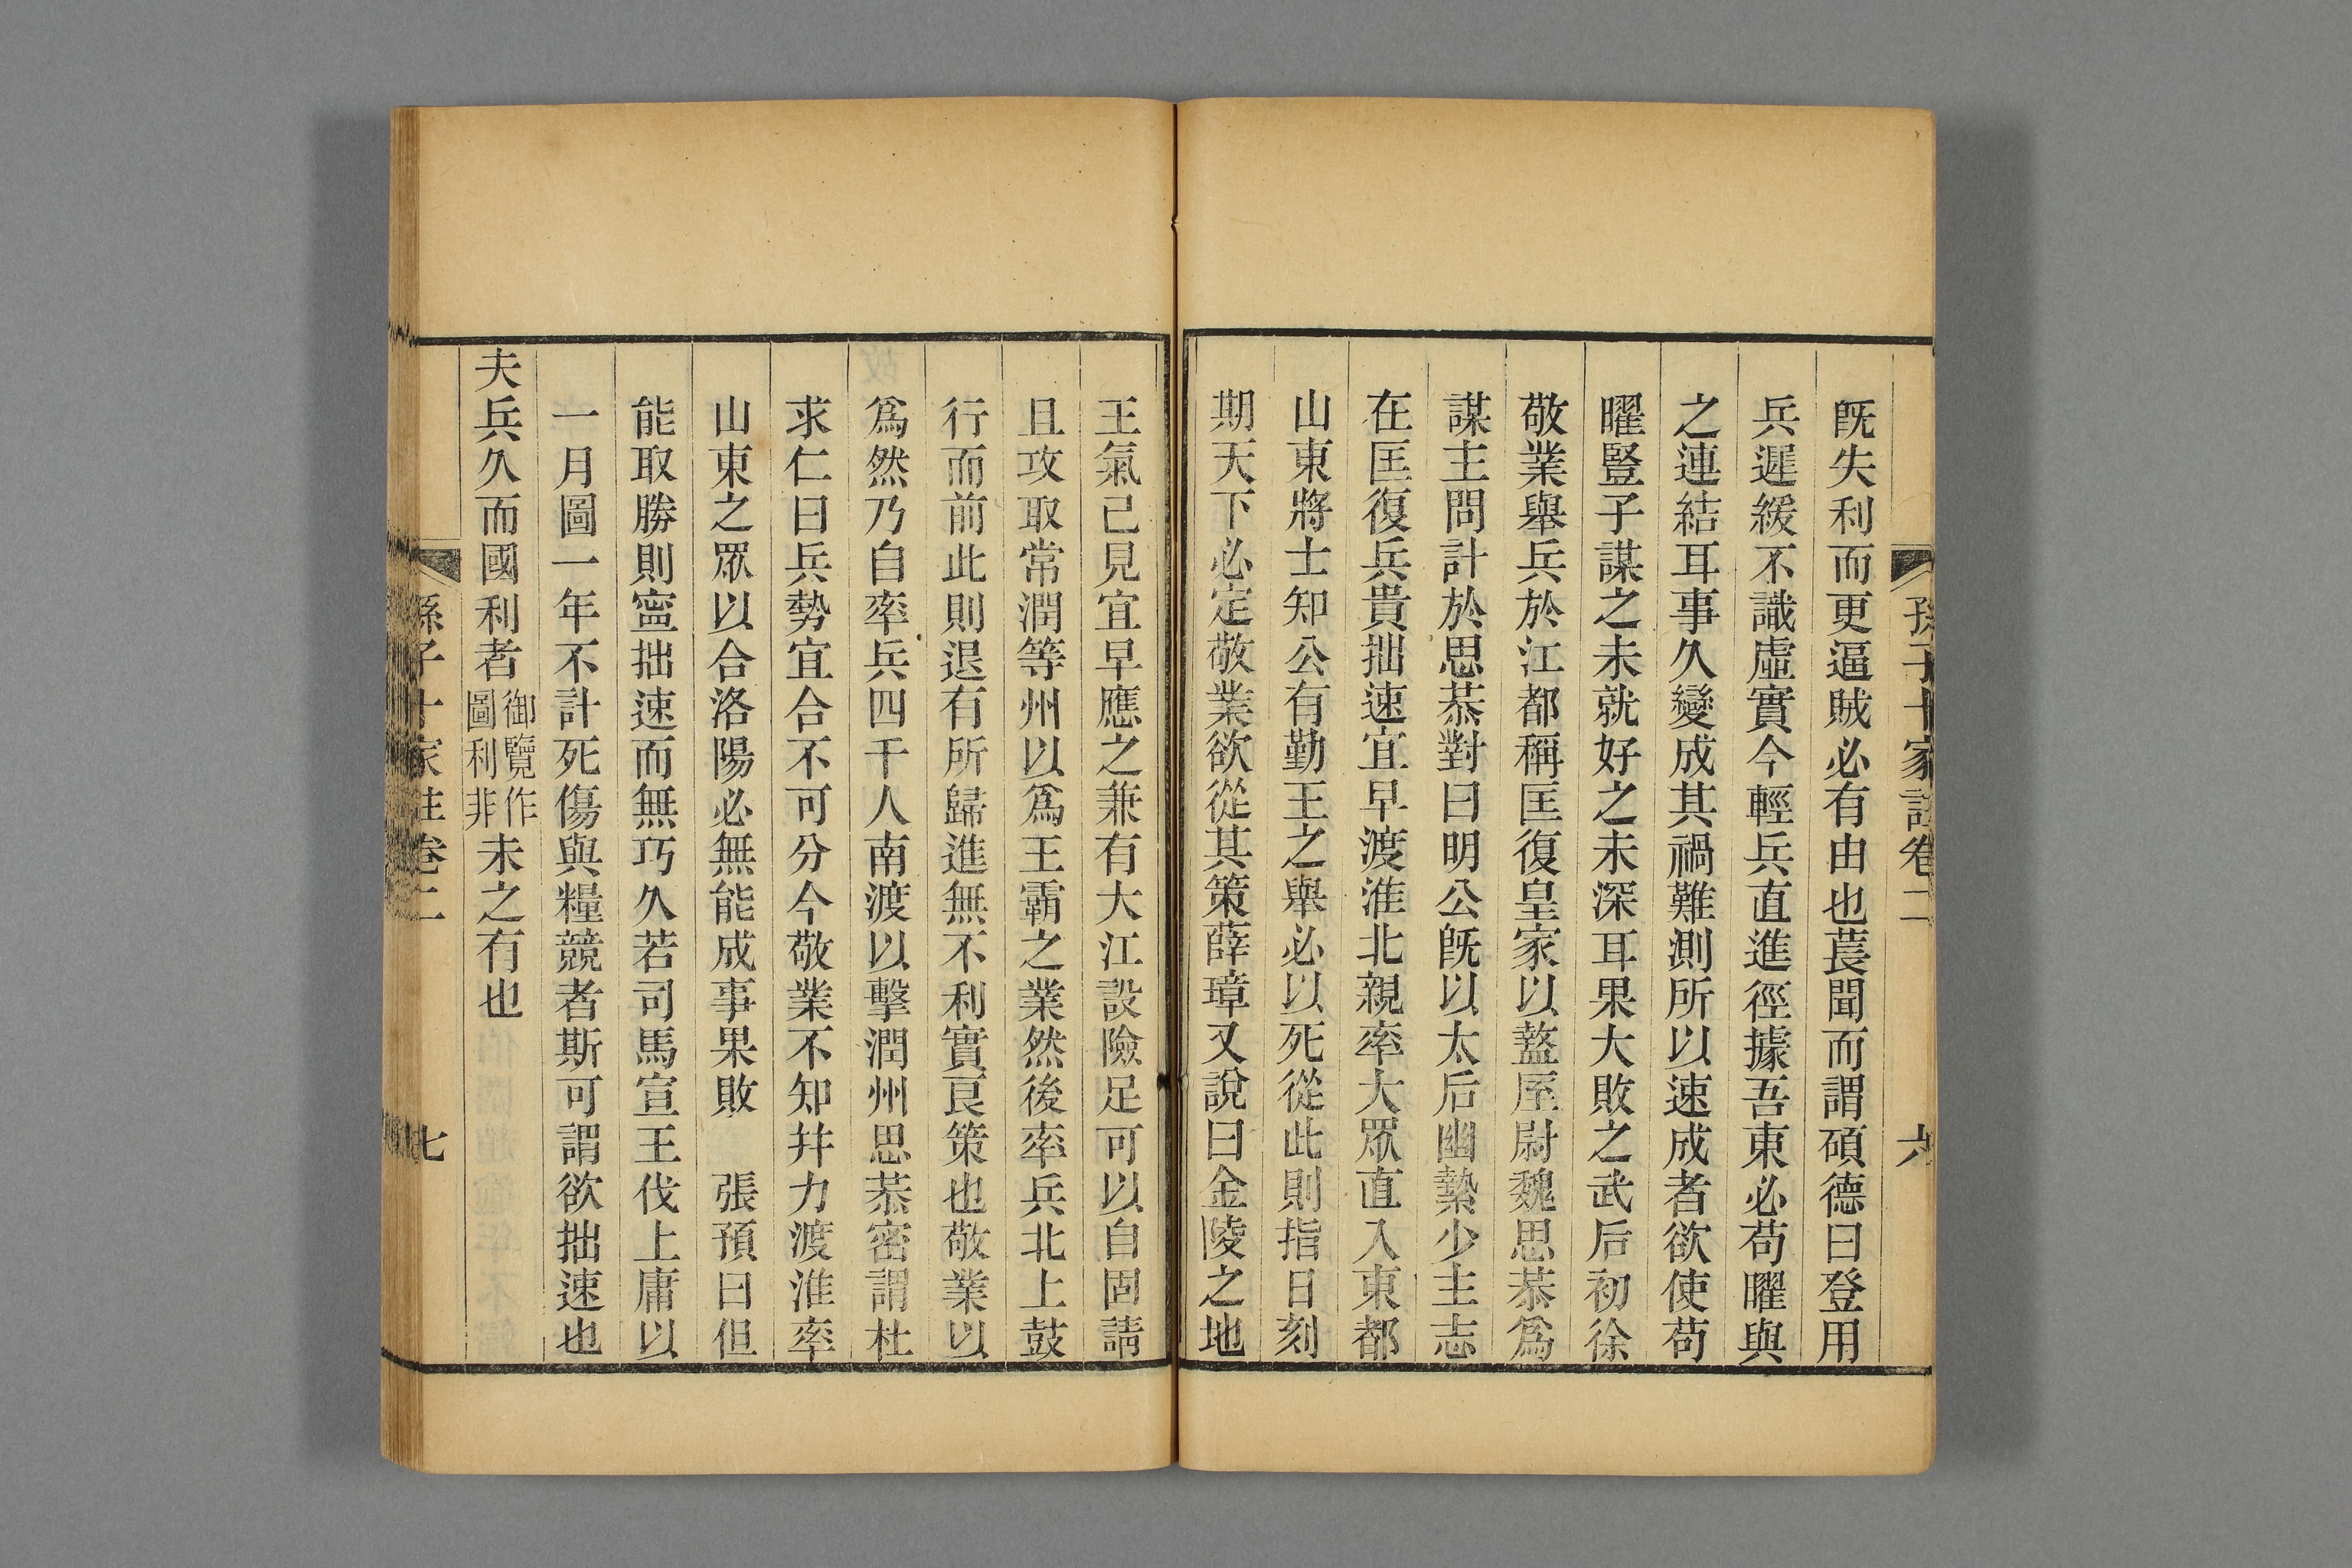 孫子十家註卷二 六
旣失利而更逼賊必有由也萇聞而謂碩德曰登用
兵遲緩不識虛實今輕兵直進徑據吾東必苟曜與
之連結耳事久變成其禍難測所以速成者欲使苟
曜豎子謀之未就好之未深耳果大敗之武后初徐
敬業舉兵於江都稱匡復皇家以盩厔尉魏思恭爲
謀主問計於思恭對曰明公旣以太后幽縶少主志
在匡復兵貴拙速宜早渡淮北親率大眾直入東都
山東將士知公有勤王之舉必以死從此則指日刻
期天下必定敬業欲從其策薛璋又說曰金陵之地
王氣已見宜早應之兼有大江設險足可以自固請
且攻取常潤等州以爲王霸之業然後率兵北上鼓
行而前此則退有所歸進無不利實良策也敬業以
爲然乃自率兵四千人南渡以擊潤州思恭密謂杜
求仁曰兵勢宜合不可分今敬業不知并力渡淮率
山東之眾以合洛陽必無能成事果敗 張預曰但
能取勝則寍拙速而無巧久若司馬宣王伐上庸以
一月圖一年不計死傷與糧競者斯可謂欲拙速也
夫兵久而國利者御覽作圖利非未之有也
孫子十家註卷二 七